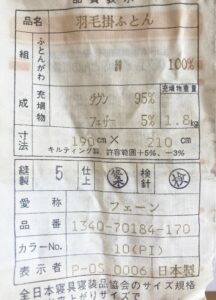 品質表示
品名 羽毛掛ふとん
組成 ふとんがわ 綿 100%
充填物 ダウン 95% 充填物重量
フェザー 5% 1.8kg
寸法 190cm × 210cm
キルティング製 許容範囲+5%、-3%
縫製 5 仕上 検針
愛称 フェーン
品番 1340-70184-170
カラーNo. 10(PI)
表示者 P-OS 0006 日本製
全日本寝具寝装品協会のサイズ規格
上がりサイズで